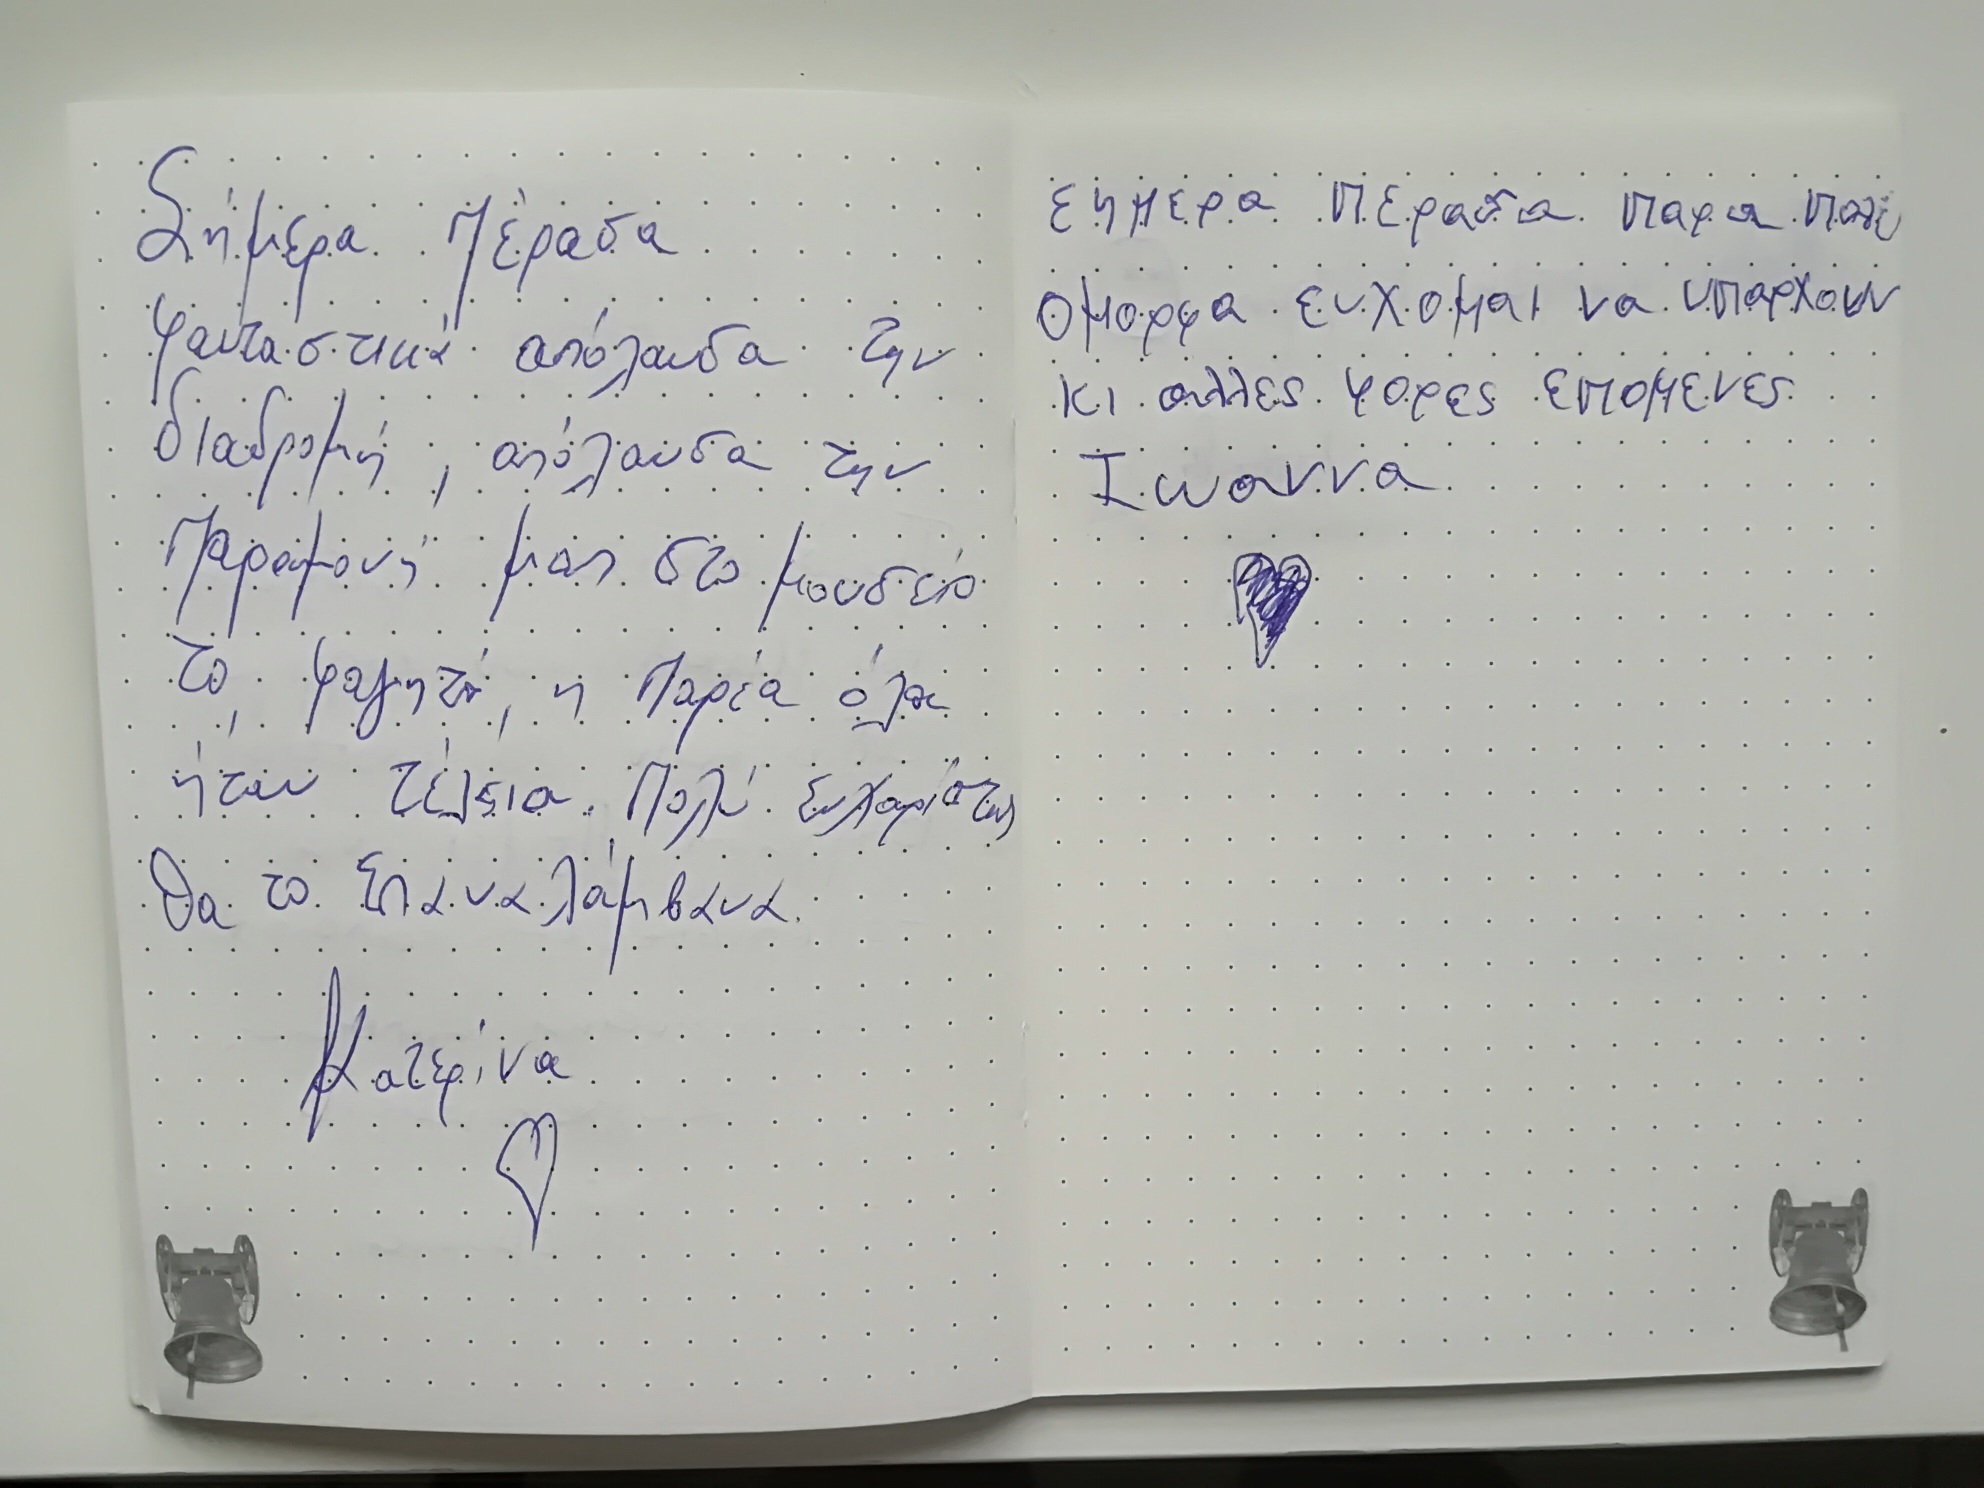 Σήμερα Πέρασα
φανταστικά απόλαυσα την
διαδρομή, απόλαυσα την
Παραμονή μας στο μουσείο
το, φαγητό, η Παρέα όλα
ήταν τέλεια. Πολύ ευχαρίστως
θα το Επαναλάμβανα.
Κατερίνα
Σημερα Περασα παρα πολυ
ομορφα ευχομαι να υπαρχουν
κι αλλες φορες επομενες
Ιωαννα